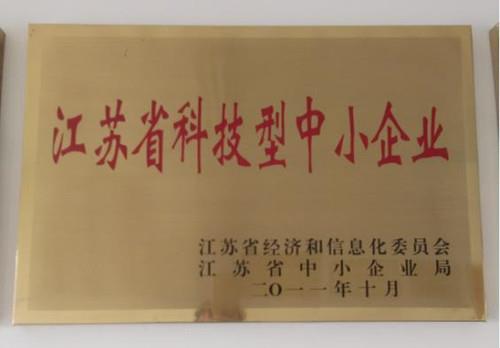 江苏省科技型中小企业
江苏省经济和信息化委员会
江苏省中小企业局
二O一一年十月